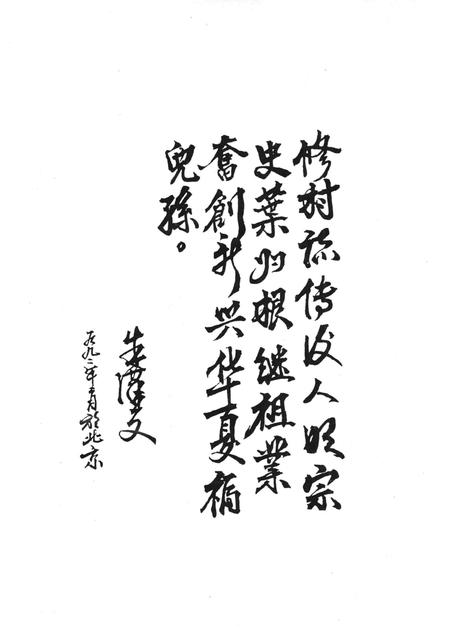 修村誌传后人明宗
史葉归根继祖業
奮創新兴华夏福
兒孫。
朱文
一九九二年五月於北京